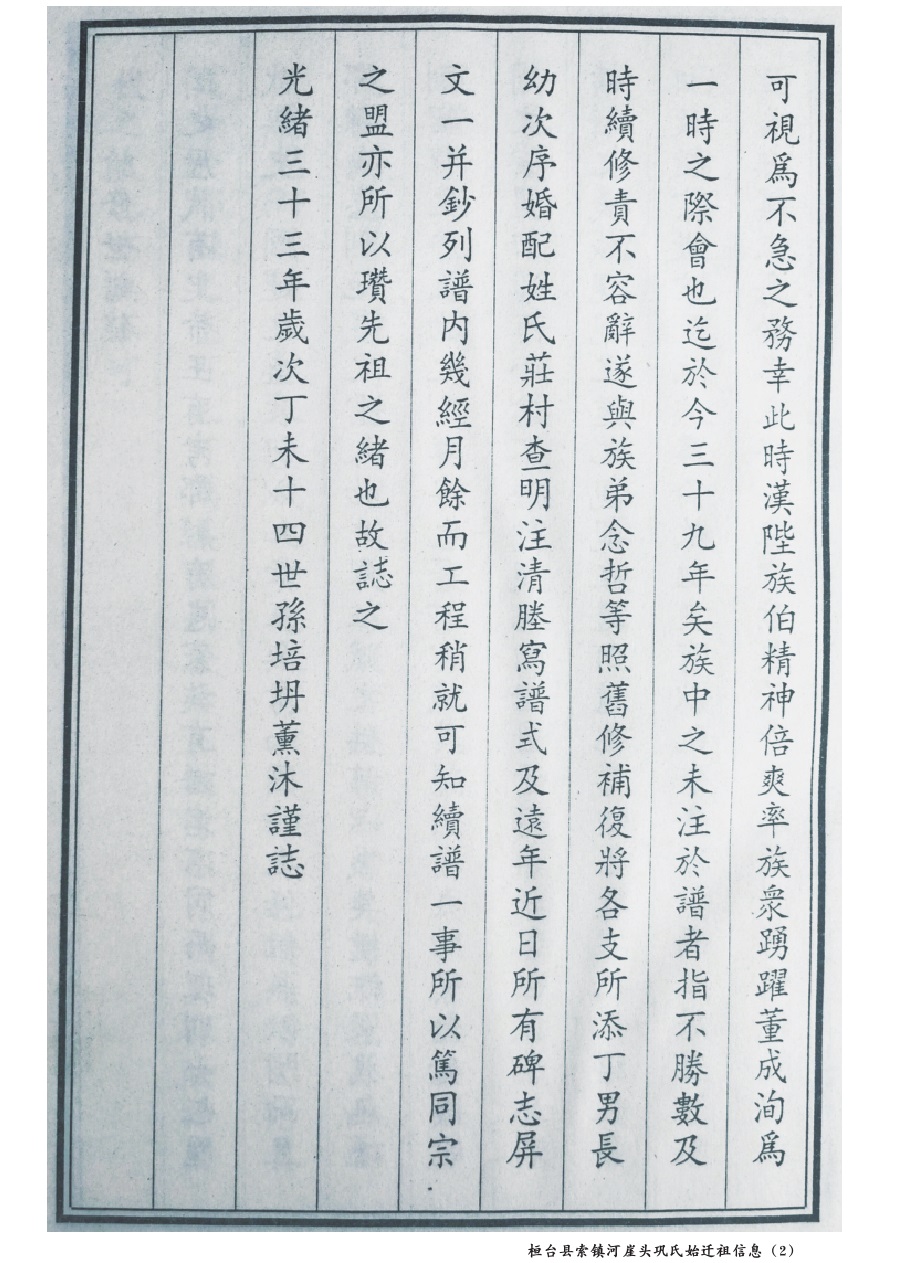 可視爲不急之務幸此時漢陛族伯精神倍爽率族衆踴躍董成洵爲
一時之際會也迄於今三十九年矣族中之未注於譜者指不勝數及
時續修責不容辭遂與族弟念哲等照舊修補復將各支所添丁男長
幼次序婚配姓氏莊村查明注清謄寫譜式及遠年近日所有碑志屏
文一并鈔列譜内幾經月餘而工程稍就可知續譜一事所以篤同宗
之盟亦所以瓚先祖之緒也故誌之
光緒三十三年歲次丁未十四世孫培坍薰沐謹誌
桓台县索镇河崖头巩氏始迁祖信息（2）